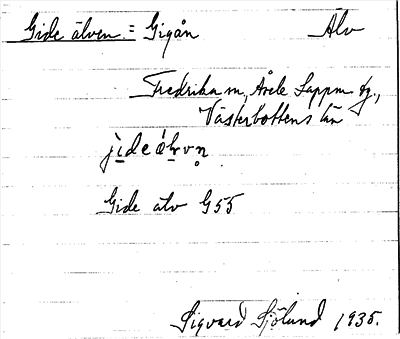 Gide älven = Gigån Älv
Fredrika sn, Åsele Lappm. tg.,
Västerbottens län
j̀ideálvn̥
Gide älv G55
Sigvard Sjölund 1935.